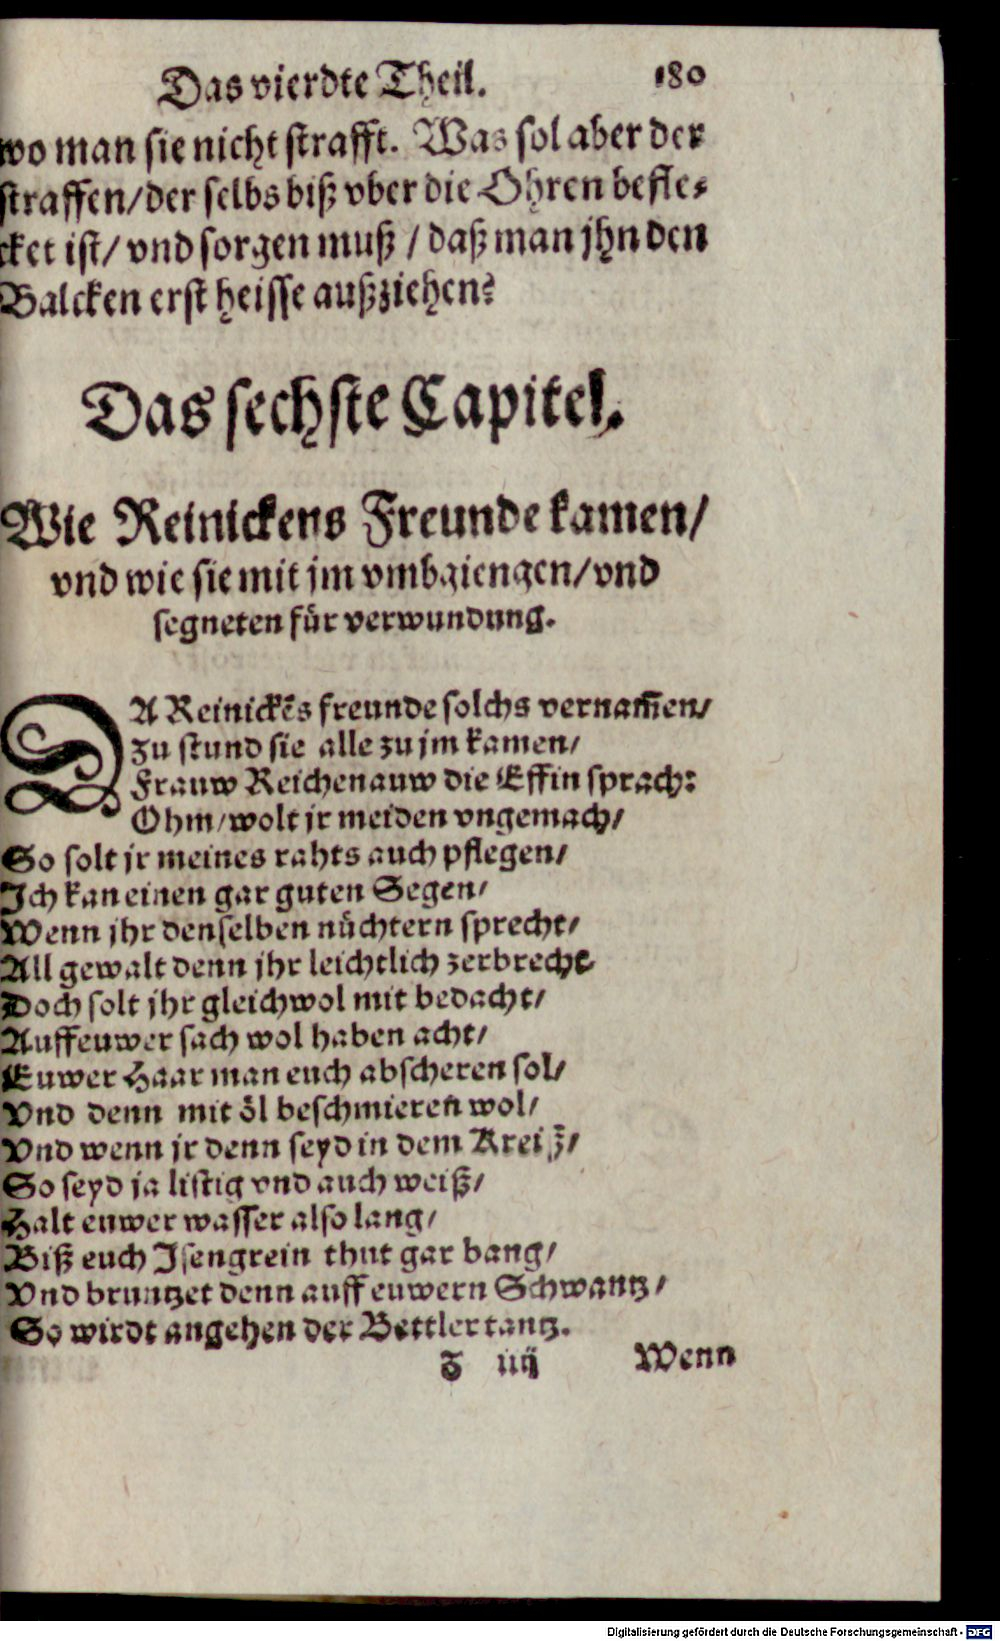 Das vierdte Theil. 180
wo man sie nicht strafft. Was sol aber der
straffen/der selbs biß vber die Ohren befle⸗
cket ist/ vnd sorgen muß / daß man jhn den
Balcken erst heisse außziehen?
Das sechste Capitel.
Wie Reinickens Freunde kamen/
vnd wie sie mit jm vmbgiengen/vnd
segneten für verwundung.
DA Reinickēs freunde solchs vernam̄en/
zu stund sie alle zu jm kamen/
Frauw Reichenauw die Effin sprach:
Ohm/wolt jr meiden vngemach/
So solt jr meines rahts auch pflegen/
Ich kan einen gar guten Segen/
Wenn jhr denselben nüchtern sprecht/
All gewalt denn jhr leichtlich zerbrecht
Doch solt jhr gleichwol mit bedacht/
Auff euwer sach wol haben acht/
Euwer Haar man euch abscheren sol/
Vnd denn mit öl beschmieren wol/
Vnd wenn jr denn seyd in dem Kreiß/
So seyd ja listig vnd auch weiß/
Halt euwer wasser also lang/
Biß euch Isengrein thut gar bang/
Vnd bruntzet denn auff euwern Schwantz/
So wirdt angehen der Bettler tantz.
Z iiij Wenn
Digitalisierung gefördert durch die Deutsche Forschungsgemeinschaft - DFG